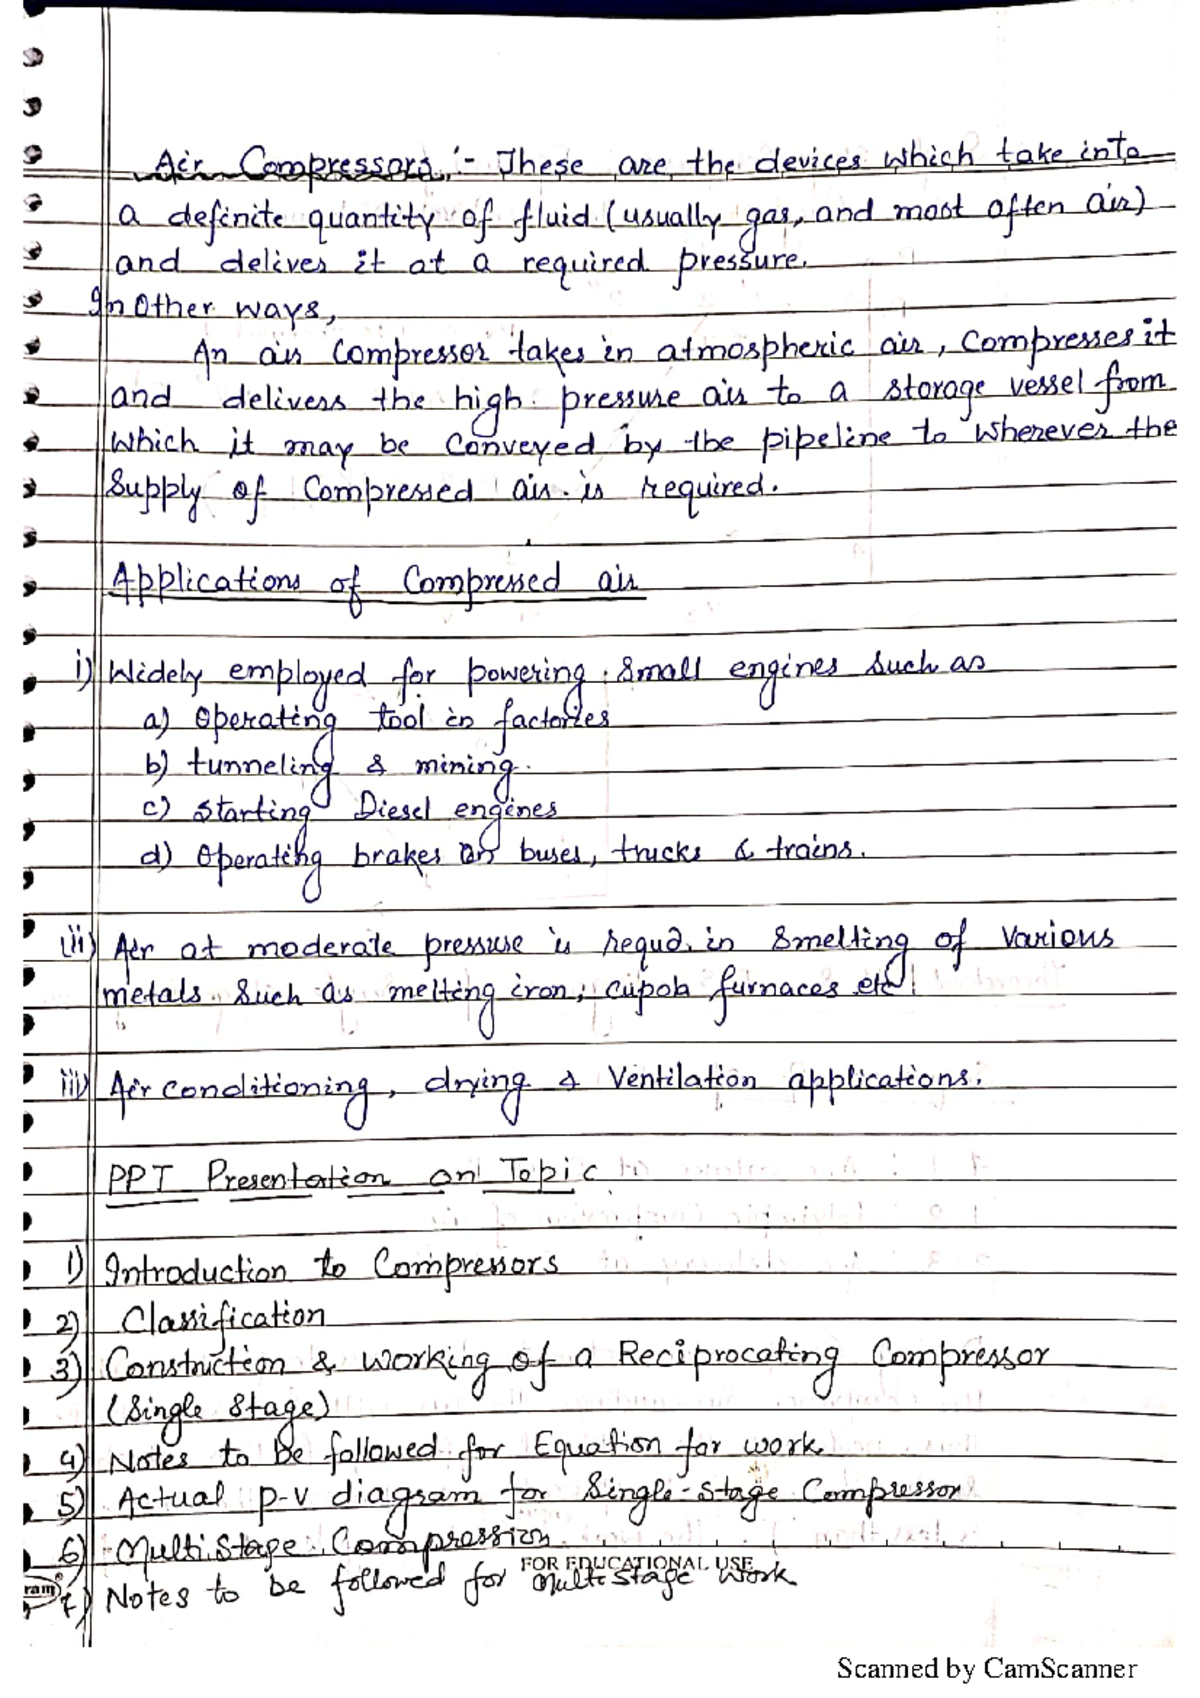 Air Compressors:- These are the devices which take into
a definite quantity of fluid (usually gas, and most often air)
and deliver it at a required pressure.
In Other ways,
An air Compressor takes in atmospheric air, Compresses it
and delivers the high pressure air to a storage vessel from
which it may be Conveyed by the pipeline to wherever the
Supply of Compressed air is required.
Applications of Compressed air
i) Widely employed for powering small engines such as
a) Operating tool in factories
b) tunneling & mining.
c) Starting Diesel engines
d) Operating brakes on buses, trucks & trains.
(ii) Air at moderate pressure is requd. in Smelting of Various
metals. Such as melting iron, cupola furnaces etc.
iii) Air conditioning, drying & Ventilation applications.
PPT Presentation on Topic
1) Introduction to Compressors
2) Classification
3) Construction & Working of a Reciprocating Compressor
(Single Stage)
4) Notes to be followed for Equation for work
5) Actual p-v diagram for Single-stage Compressor
6) Multistage Compression
FOR EDUCATIONAL USE
7) Notes to be followed for Multistage Work
Scanned by CamScanner